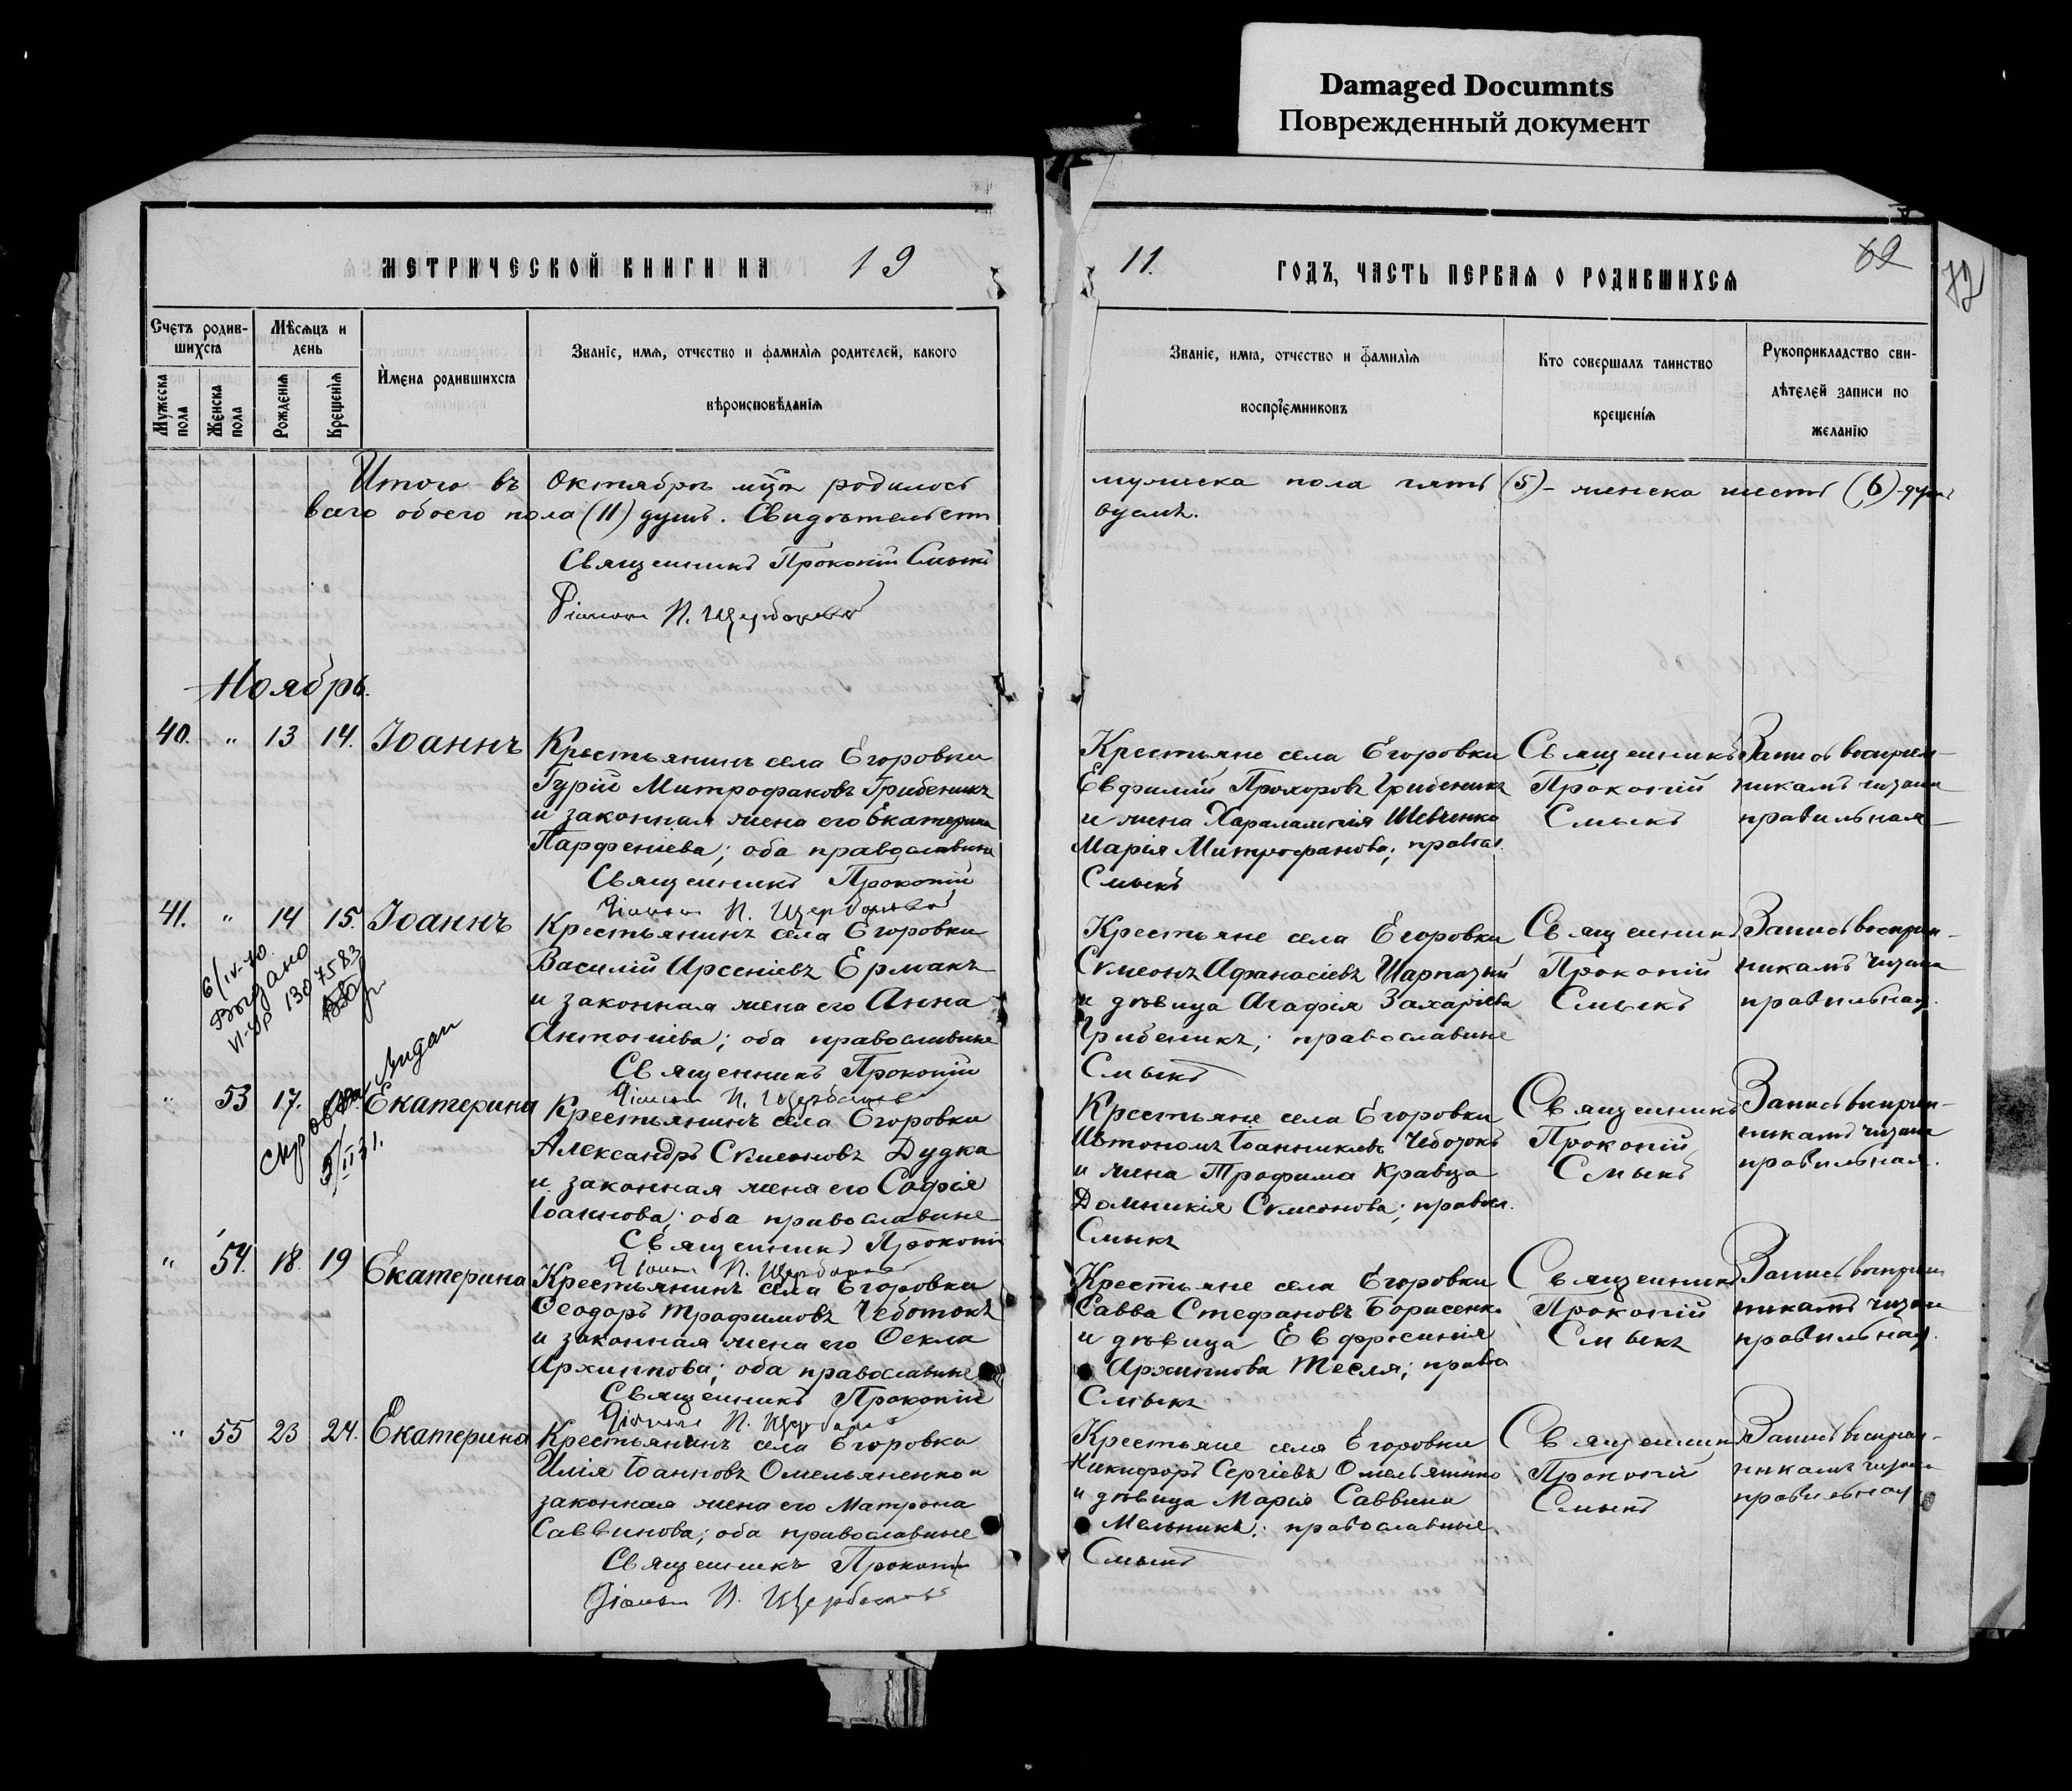 Damaged Documnts
Поврежденный документ
МЕТРИЧЕСКОЙ КНИГИ НА 19
11. ГОДЪ, ЧАСТЬ ПЕРВАЯ О РОДИВШИХСЯ
69
72
Счетъ родив-
шихся
Мѣсяцъ и
день
Мужеска
пола
Женска
пола
Рожденія
Крещенія
Имена родившихся
Званіе, имя, отчество и фамилія родителей, какого
вѣроисповѣданія
Званіе, имя, отчество и фамилія
воспріемниковъ
Кто совершалъ таинство
крещенія
Рукоприкладство сви-
дѣтелей записи по
желанію
Итого въ Октябрѣ мцѣ родилось мужеска пола пять (5) - женска шесть (6) - душъ
всего обоего пола (11) душъ. Свидѣтельств
вуемъ.
Священникъ Прокопій Смыкъ
П. Щербаковъ
Ноябрь.
40. " 13 14. Іоаннъ
Крестьянинъ села Егоровки
Гурій Митрофановъ Грибеникъ
и законная жена его Екатерина
Парфеніева; оба православные
Священникъ Прокопій
П. Щербаковъ
Крестьяне села Егоровки
Евфимій Прохоровъ Грибеникъ
и жена Харалампія Шевченко
Марія Митрофанова; правосл.
Смыкъ
Священникъ
Прокопій
Смыкъ
Запись воспріем-
никамъ читана
правильная
41. " 14 15. Іоаннъ
Крестьянинъ села Егоровки
Василій Арсеніевъ Ермакъ
и законная жена его Анна
Антоніева; оба православные
Священникъ Прокопій
П. Щербаковъ
Крестьяне села Егоровки
Сѵмеонъ Афанасіевъ
и дѣвица Агафія Захаріева
Грибеникъ; православные
Смыкъ
Священникъ
Прокопій
Смыкъ
Запись воспріем-
никамъ читана
правильная.
6/IV-70
Выдано
VI-УР 1307583
" 53 17. Екатерина
5/II 31.
Крестьянинъ села Егоровки
Александръ Сѵмеоновъ Дудка
и законная жена его Софія
Іоаннова; оба православные
Священникъ Прокопій
П. Щербаковъ
Крестьяне села Егоровки
Автономъ Іоанникіевъ Чеботокъ
и жена Трофима Кравца
Домникія Сѵмеонова; правосл.
Смыкъ
Священникъ
Прокопій
Смыкъ
Запись воспріем-
никамъ читана
правильная.
" 54. 18. 19 Екатерина
Крестьянинъ села Егоровки
Ѳеодоръ Трофимовъ Чеботокъ
и законная жена его Ѳекла
Архиппова; оба православные
Священникъ Прокопій
П. Щербаковъ
Крестьяне села Егоровки
Савва Стефановъ Борисенко
и дѣвица Евфросинія
Архиппова Тесля; право
Смыкъ
Священникъ
Прокопій
Смыкъ
Запись воспріем-
никамъ читана
правильная.
" 55 23 24. Екатерина
Крестьянинъ села Егоровка
Илія Іоанновъ Омельяненко и
законная жена его Матрона
Саввинова; оба православные
Священникъ Прокопій
П. Щербаковъ
Крестьяне села Егоровки
Никифоръ Сергіевъ Омельяненко
и дѣвица Марія Саввина
Мельникъ; православные.
Смыкъ
Священникъ
Прокопій
Смыкъ
Запись воспріем-
никамъ читана
правильная